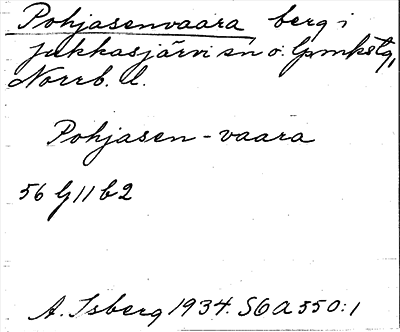 Pohjasenvaara berg i
Jukkasjärvi sn o. lpmkstg,
Norrb. l.
Pohjasen-vaara
56 G 11 b 2
A. Isberg 1934. S6A550:1